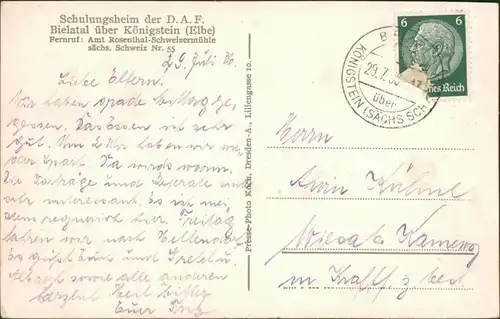 Schulungsheim der D. A. F.
Bielatal über Königstein (Elbe)
Fernruf: Amt Rosenthal-Schweizermühle
sächs. Schweiz Nr. 55
29. Juli 36.
Liebe Eltern.
Wir haben grade Mittag ge-
gessen. Das Essen ist sehr
gut. Um 2 Uhr haben wir wie-
der Sport. Da wirds warm.
Die Vorträge und Referate sind
sehr interessant. Es ist mei-
stem regnerisch hier. Freitag
fahren wir nach Hellendorf.
Es grüßt Euch und
sowie alle anderen
herzlich Heil Hitler
Euer
Presse-Photo Koch, Dresden-A., Liliengasse 10.
6 6
Deutsches Reich
29.7.36
über
KÖNIGSTEIN (SÄCHS SCH
Herrn
Kühne
Wiesa b. Kamenz